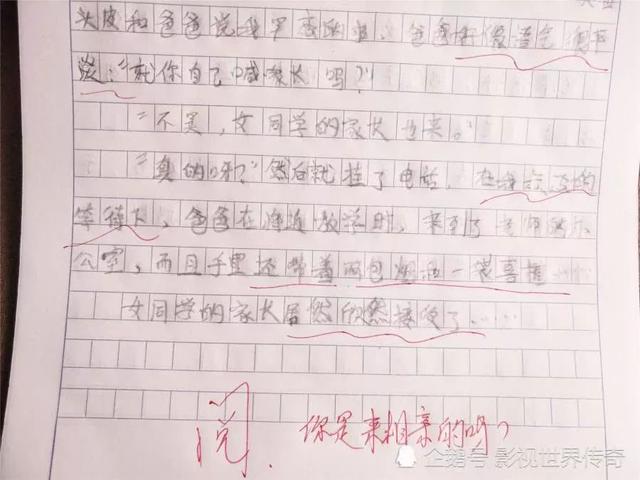 头皮和爸爸说我早恋的事，爸爸好像
“就你自己喊家长吗？”
“不是，女同学的家长也来。”
“真的呀？”然后就挂了电话，在
等待下，爸爸在净近放学时，来到了老师的办
公室，而且手里还带着两包烟酒一袋喜糖
女同学的家长居然欣然接受了……
阅 你是来相亲的吗？
企鹅号 影视世界传奇